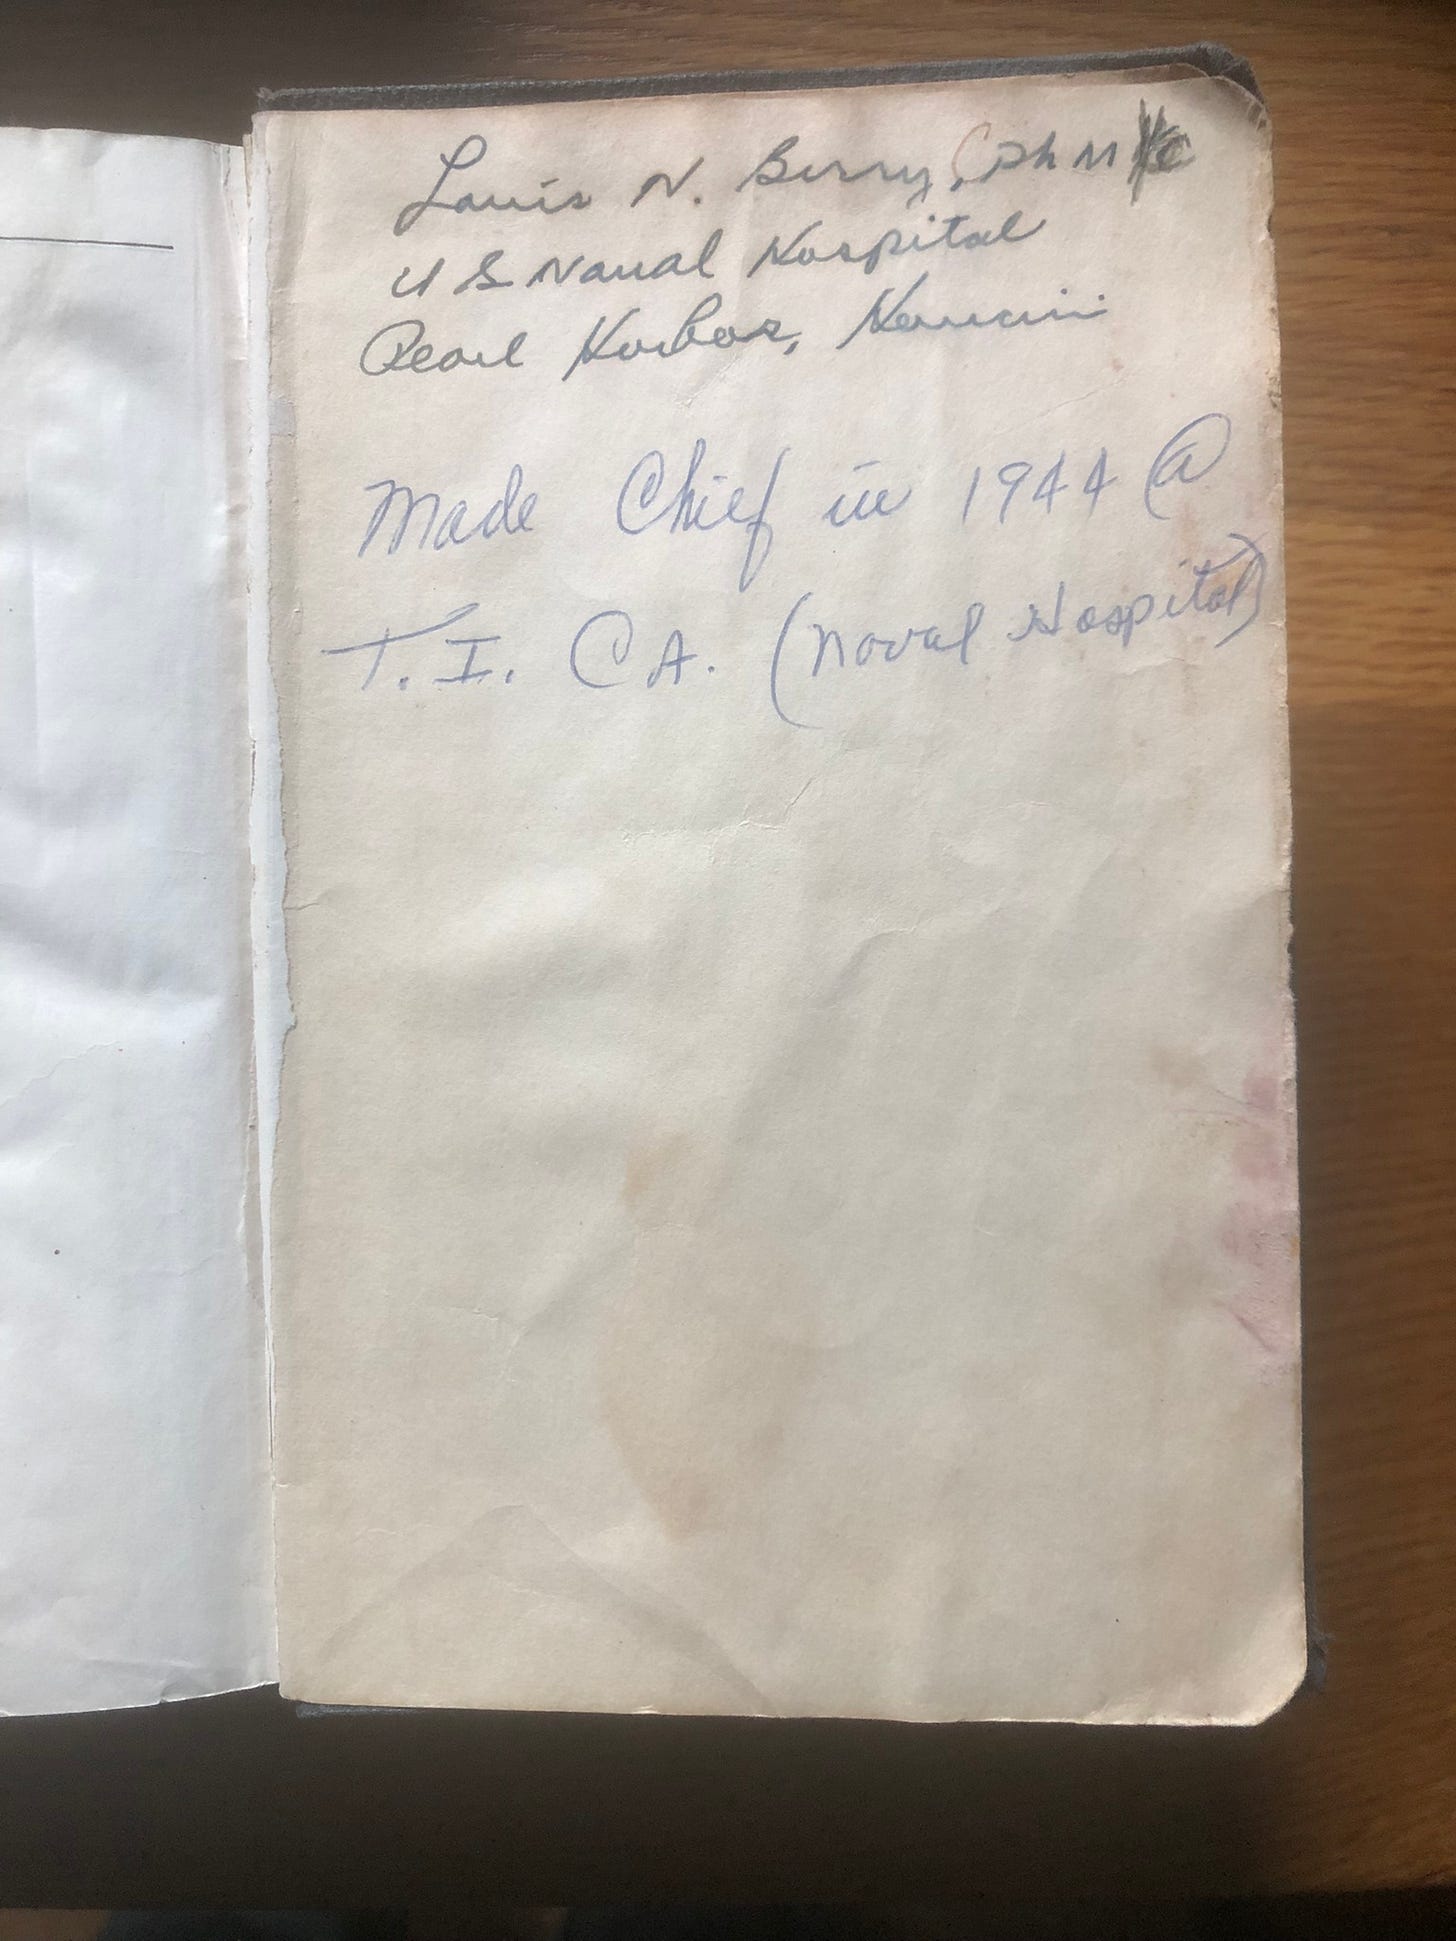 Louis N. Berry, CPhM
U S Naval Hospital
Pearl Harbor, Hawaii
Made Chief in 1944 @
T. I. CA. (Naval Hospital)